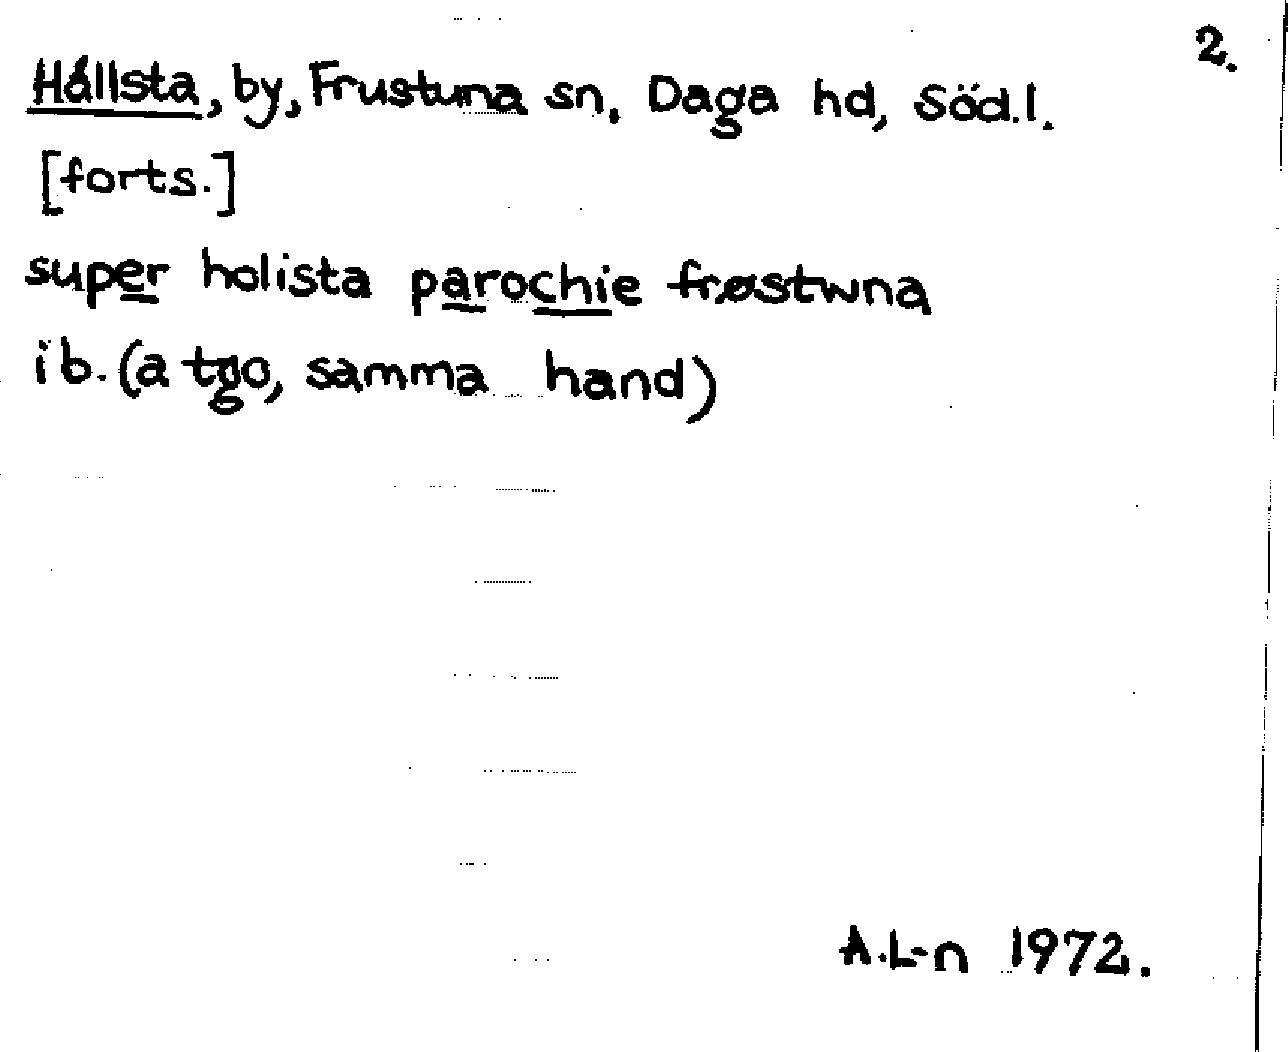 2.
Hållsta, by, Frustuna sn, Daga hd, Söd.l.
[forts.]
super holista parochie frøstwna
ib. (a tgo, samma hand)
A.L-n 1972.